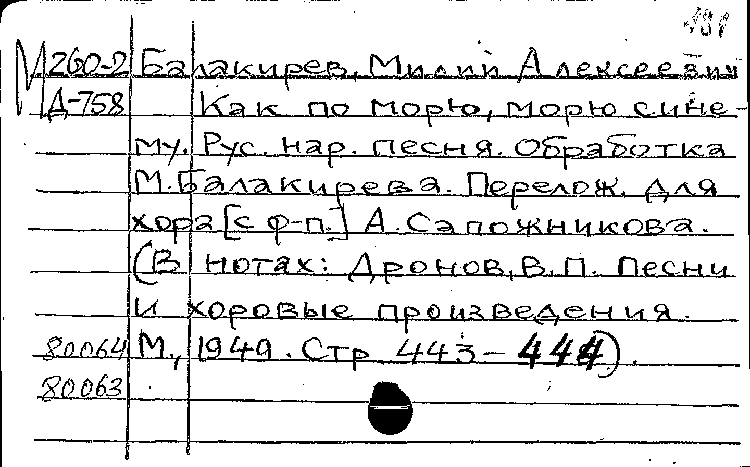 М260-2 Балакирев, Милий Алексеевич
Д-758 Как по морю, морю сине-
му. Рус. нар. песня. Обработка
М. Балакирева. Перелож. для
хора [с ф-п.] А. Сапожникова.
(В нотах: Дронов, В.П. Песни
и хоровые произведения.
80064 М., 1949. Стр. 443-444).
80063